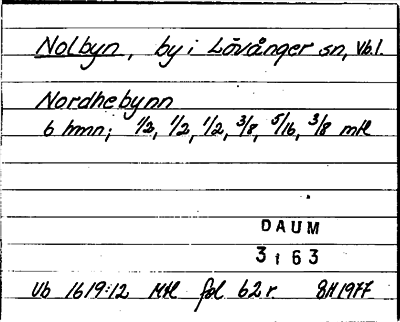 Nolbyn, by i Lövånger sn, Vb.l.
Nordhebynn
6 hmn; 1/2, 1/2, 1/2, 3/8, 5/16, 3/8 mtl
DAUM
3163
Vb 1619:12 Mtl fol 62 r. BH 1977